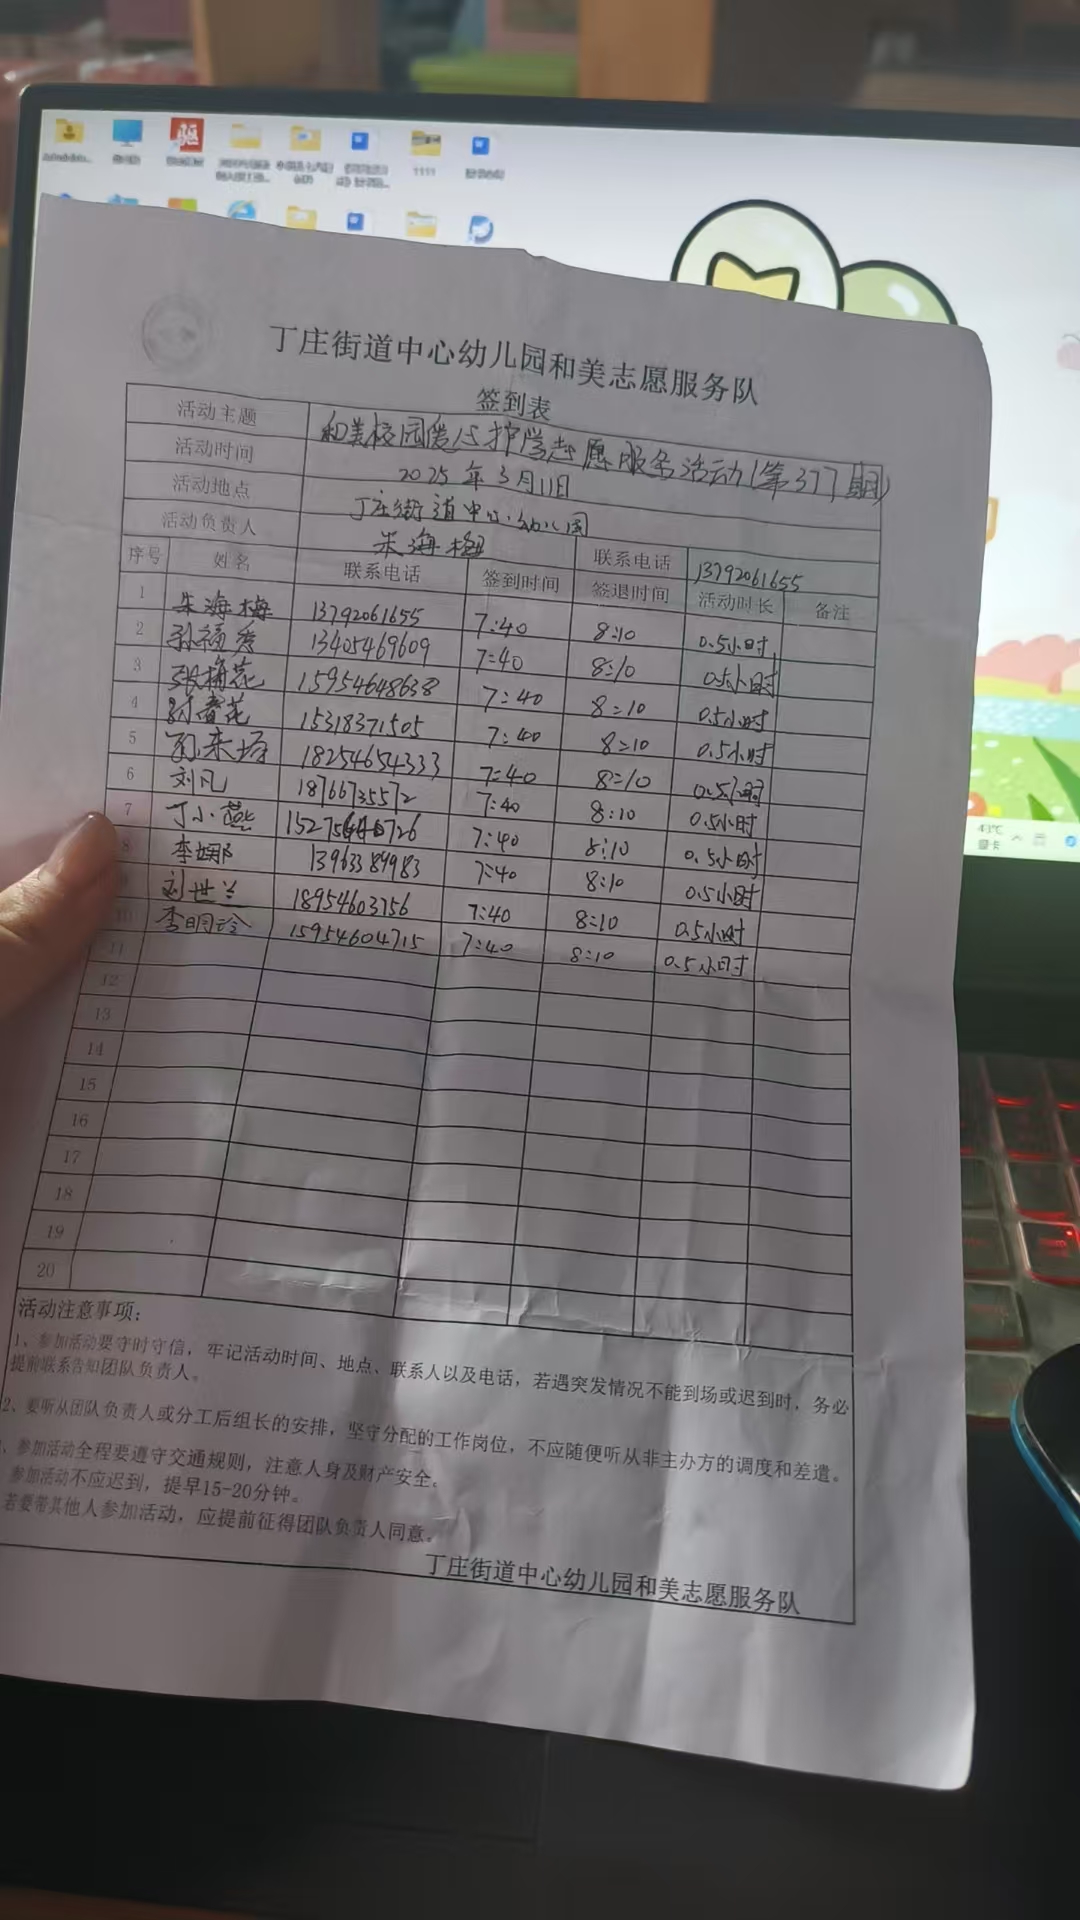 1111
丁庄街道中心幼儿园和美志愿服务队
签到表
活动主题 和美校园爱心护学志愿服务活动(第377期)
活动时间 2025年3月11日
活动地点 丁庄街道中心幼儿园
活动负责人 朱海梅 联系电话 13792061655
序号 姓名 联系电话 签到时间 签退时间 活动时长 备注
1 朱海梅 13792061655 7:40 8:10 0.5小时
2 孙福秀 13405469609 7:40 8:10 0.5小时
3 张梅花 15954648638 7:40 8:10 0.5小时
4 春花 15318371505 7:40 8:10 0.5小时
5 18254654333 7:40 8:10 0.5小时
6 刘凡 18766735572 7:40 8:10 0.5小时
7 丁小燕 7:40 8:10 0.5小时
8 李娜 13963389983 7:40 8:10 0.5小时
9 刘世兰 18954603756 7:40 8:10 0.5小时
10 李明玲 15954604715 7:40 8:10 0.5小时
11
12
13
14
15
16
17
18
19
20
活动注意事项:
1、参加活动要守时守信，牢记活动时间、地点、联系人以及电话，若遇突发情况不能到场或迟到时，务必
提前联系告知团队负责人。
2、要听从团队负责人或分工后组长的安排，坚守分配的工作岗位，不应随便听从非主办方的调度和差遣。
、参加活动全程要遵守交通规则，注意人身及财产安全。
参加活动不应迟到，提早15-20分钟。
若要带其他人参加活动，应提前征得团队负责人同意。
丁庄街道中心幼儿园和美志愿服务队
43℃
显卡